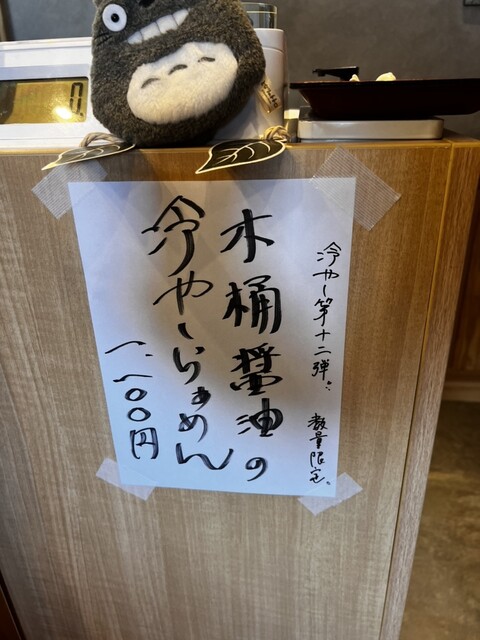 冷やし第十二弾!!
数量限定。
木桶醤油の
冷やしらぁめん
一、一〇〇円
0